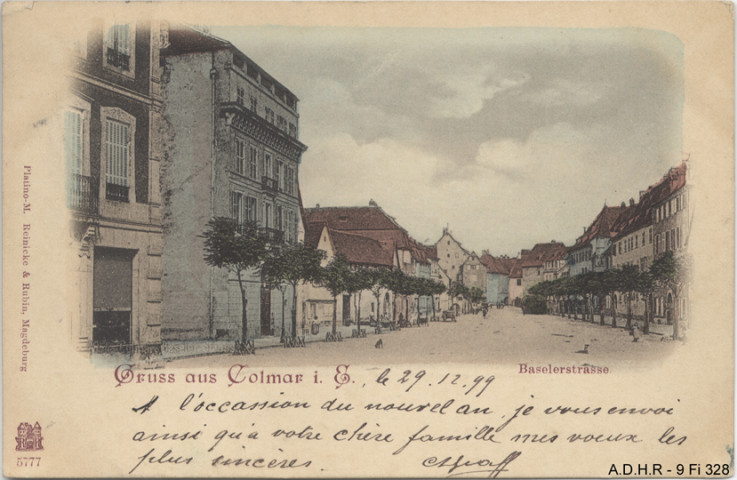 Platino-M. Reinicke & Rubin, Magdeburg
Gruss aus Colmar i. E., le 29.12.99
Baselerstrasse
A l'occasion du nouvel an, je vous envoi
ainsi qu'a votre chère famille mes voeux les
plus sincères.
5777
A.D.H.R - 9 Fi 328